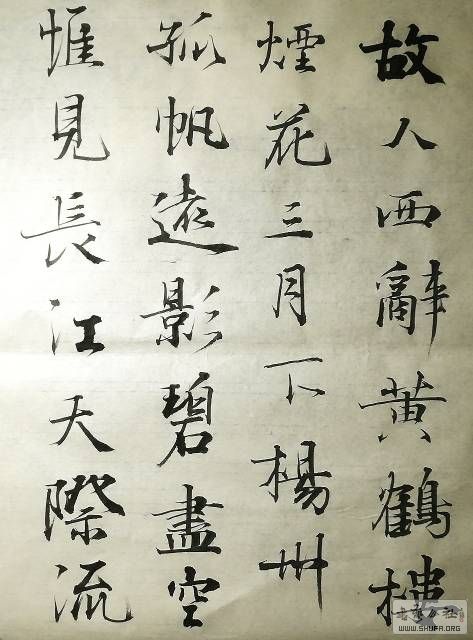 故人西辭黄鶴樓
煙花三月下楊州
孤帆遠影碧盡空
惟見長江天際流
WWW.SHUFA.ORG